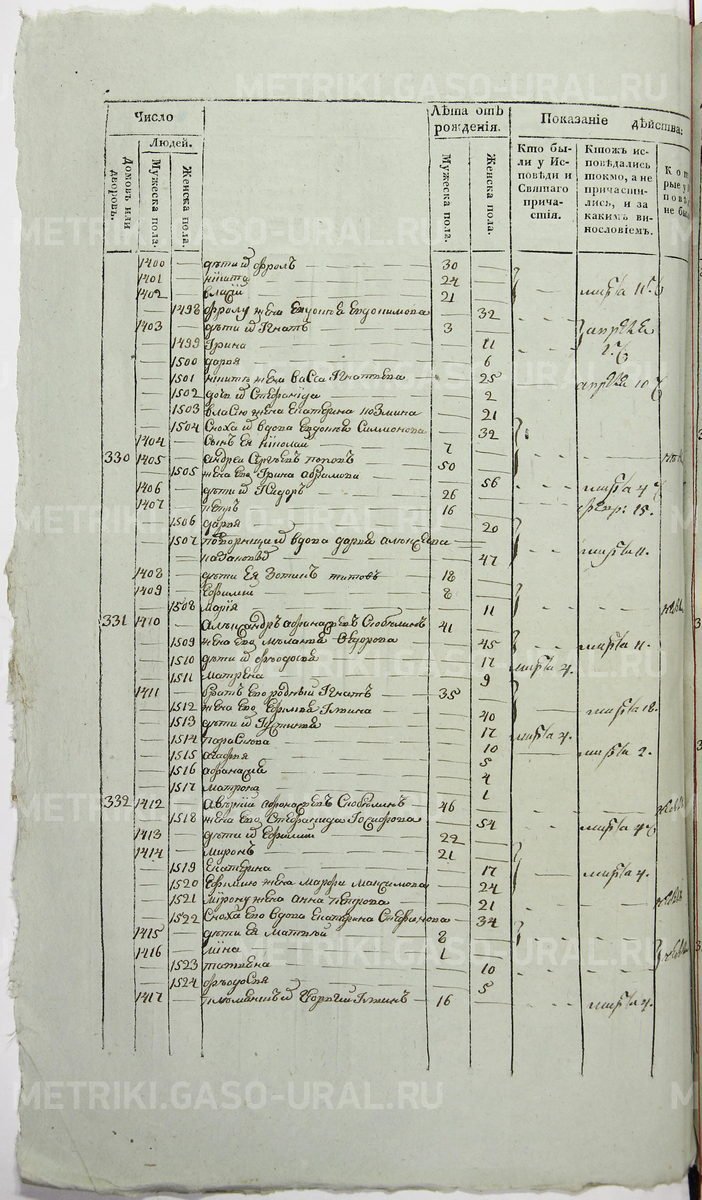 METRIKI.GASO-URAL.RU
Число
Лѣта отъ рожденія.
Показаніе дѣйства:
Людей.
Домовъ или дворовъ.
Мужеска пола.
Женска пола.
Мужеска пола.
Женска пола.
Кто бы-
ли у Ис-
повѣди и
Святаго
прича-
стія.
Ктожъ ис-
повѣдались
токмо, а не
причасти-
лись, и за
какимъ ви-
нословіемъ.
Кот
рые у
повѣ
не бы
1400 — дѣти и Фролъ — 30 —
1401 — никита — 24 —
1402 — власий — 21 — марта 11.
— 1498 Фролу жена Евдокия Евдокимова — 32
1403 — дѣти и Игнатъ — 3 —
— 1499 Ирина — 11
— 1500 дарья — 6
— 1501 никитѣ жена васса Игнатьева — 25 10
— 1502 дочь и Стефанида — 2
— 1503 власию жена Екатерина козмина — 21
— 1504 Сноха и вдова Евдокия Симионова — 32
1404 — сынъ Ея николай — 7 —
330 1405 — андрей Сергѣевъ поповъ — 50 —
— 1505 жена Его Ирина абрамова — 56
1406 — дѣти и Исидоръ — 26 — марта 4
1407 — петръ — 16 — февр: 15.
— 1506 дарья — 20
— 1507 и вдова дарья алексѣева
— 47 марта 11.
1408 — дѣти Ея Зотикъ титовъ — 18 —
1409 — Ефимий — 8 —
— 1508 мария — 11
331 1410 — александръ афанасьевъ Скобелинъ — 41 —
— 1509 жена Его меланья Федорова — 45 марта 11.
— 1510 дѣти и феодосья — 17 марта 4.
— 1511 матрена — 9
1411 — братъ Его родный Игнатъ — 35 —
— 1512 жена Его Ефимия Ильина — 40 марта 18.
— 1513 дѣти и Иустиния — 17 марта 4.
— 1514 парасковья — 10 марта 2.
— 1515 агафья — 5
— 1516 афанасия — 4
— 1517 матрона — 1
332 1412 — афанасьевъ Скобелинъ — 46 —
— 1518 жена Его Стефанида Иосифова — 54 марта 4
1413 — дѣти и Ефимий — 22 —
1414 — миронъ — 21 —
— 1519 Екатерина — 17 марта 4.
— 1520 Ефимию жена марфа максимова — 24
— 1521 мирону жена анна петрова — 21
— 1522 Сноха Его вдова Екатерина Стефанова — 34
1415 — дѣти Ея матвей — 8 —
1416 — мина — 1 —
— 1523 татьяна — 10
— 1524 феодосья — 5
1417 — племянникъ и Георгий Ильинъ — 16 — марта 4.
METRIKI.GASO-URAL.RU